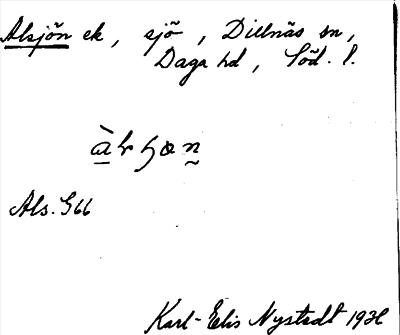 Alsjön ek, sjö, Dillnäs sn,
Daga hd, Söd. l.
Als. G66
Karl-Elis Nystedt 193